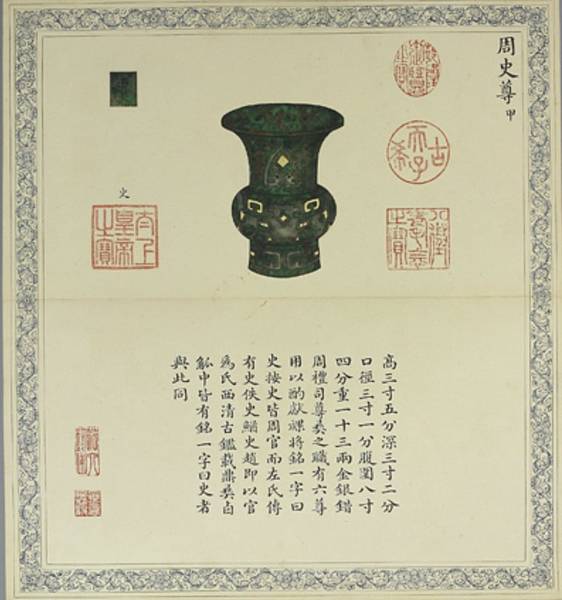 周史尊 甲
乾隆御覽之寶
古希天子
八徵耄念之寶
史
太上皇帝之寶
高三寸五分深三寸二分
口徑三寸一分腹圍八寸
四分重一十三兩金銀錯
周禮司尊彝之職有六尊
用以酌獻祼將銘一字曰
史按史皆周官而左氏傳
有史佚史鰌史趙即以官
爲氏西清古鑑載鼎彝卣
觚中皆有銘一字曰史者
與此同